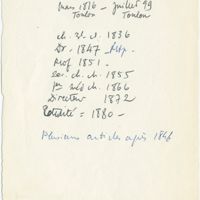 mars 1816 – juillet 99
Toulon Toulon
ch. 1836
Dr - 1847
Prof 1851 -
sec. ch. ch. 1855
1866
Directeur 1872
Retraité = 1880 -
Plusieurs articles après 1846